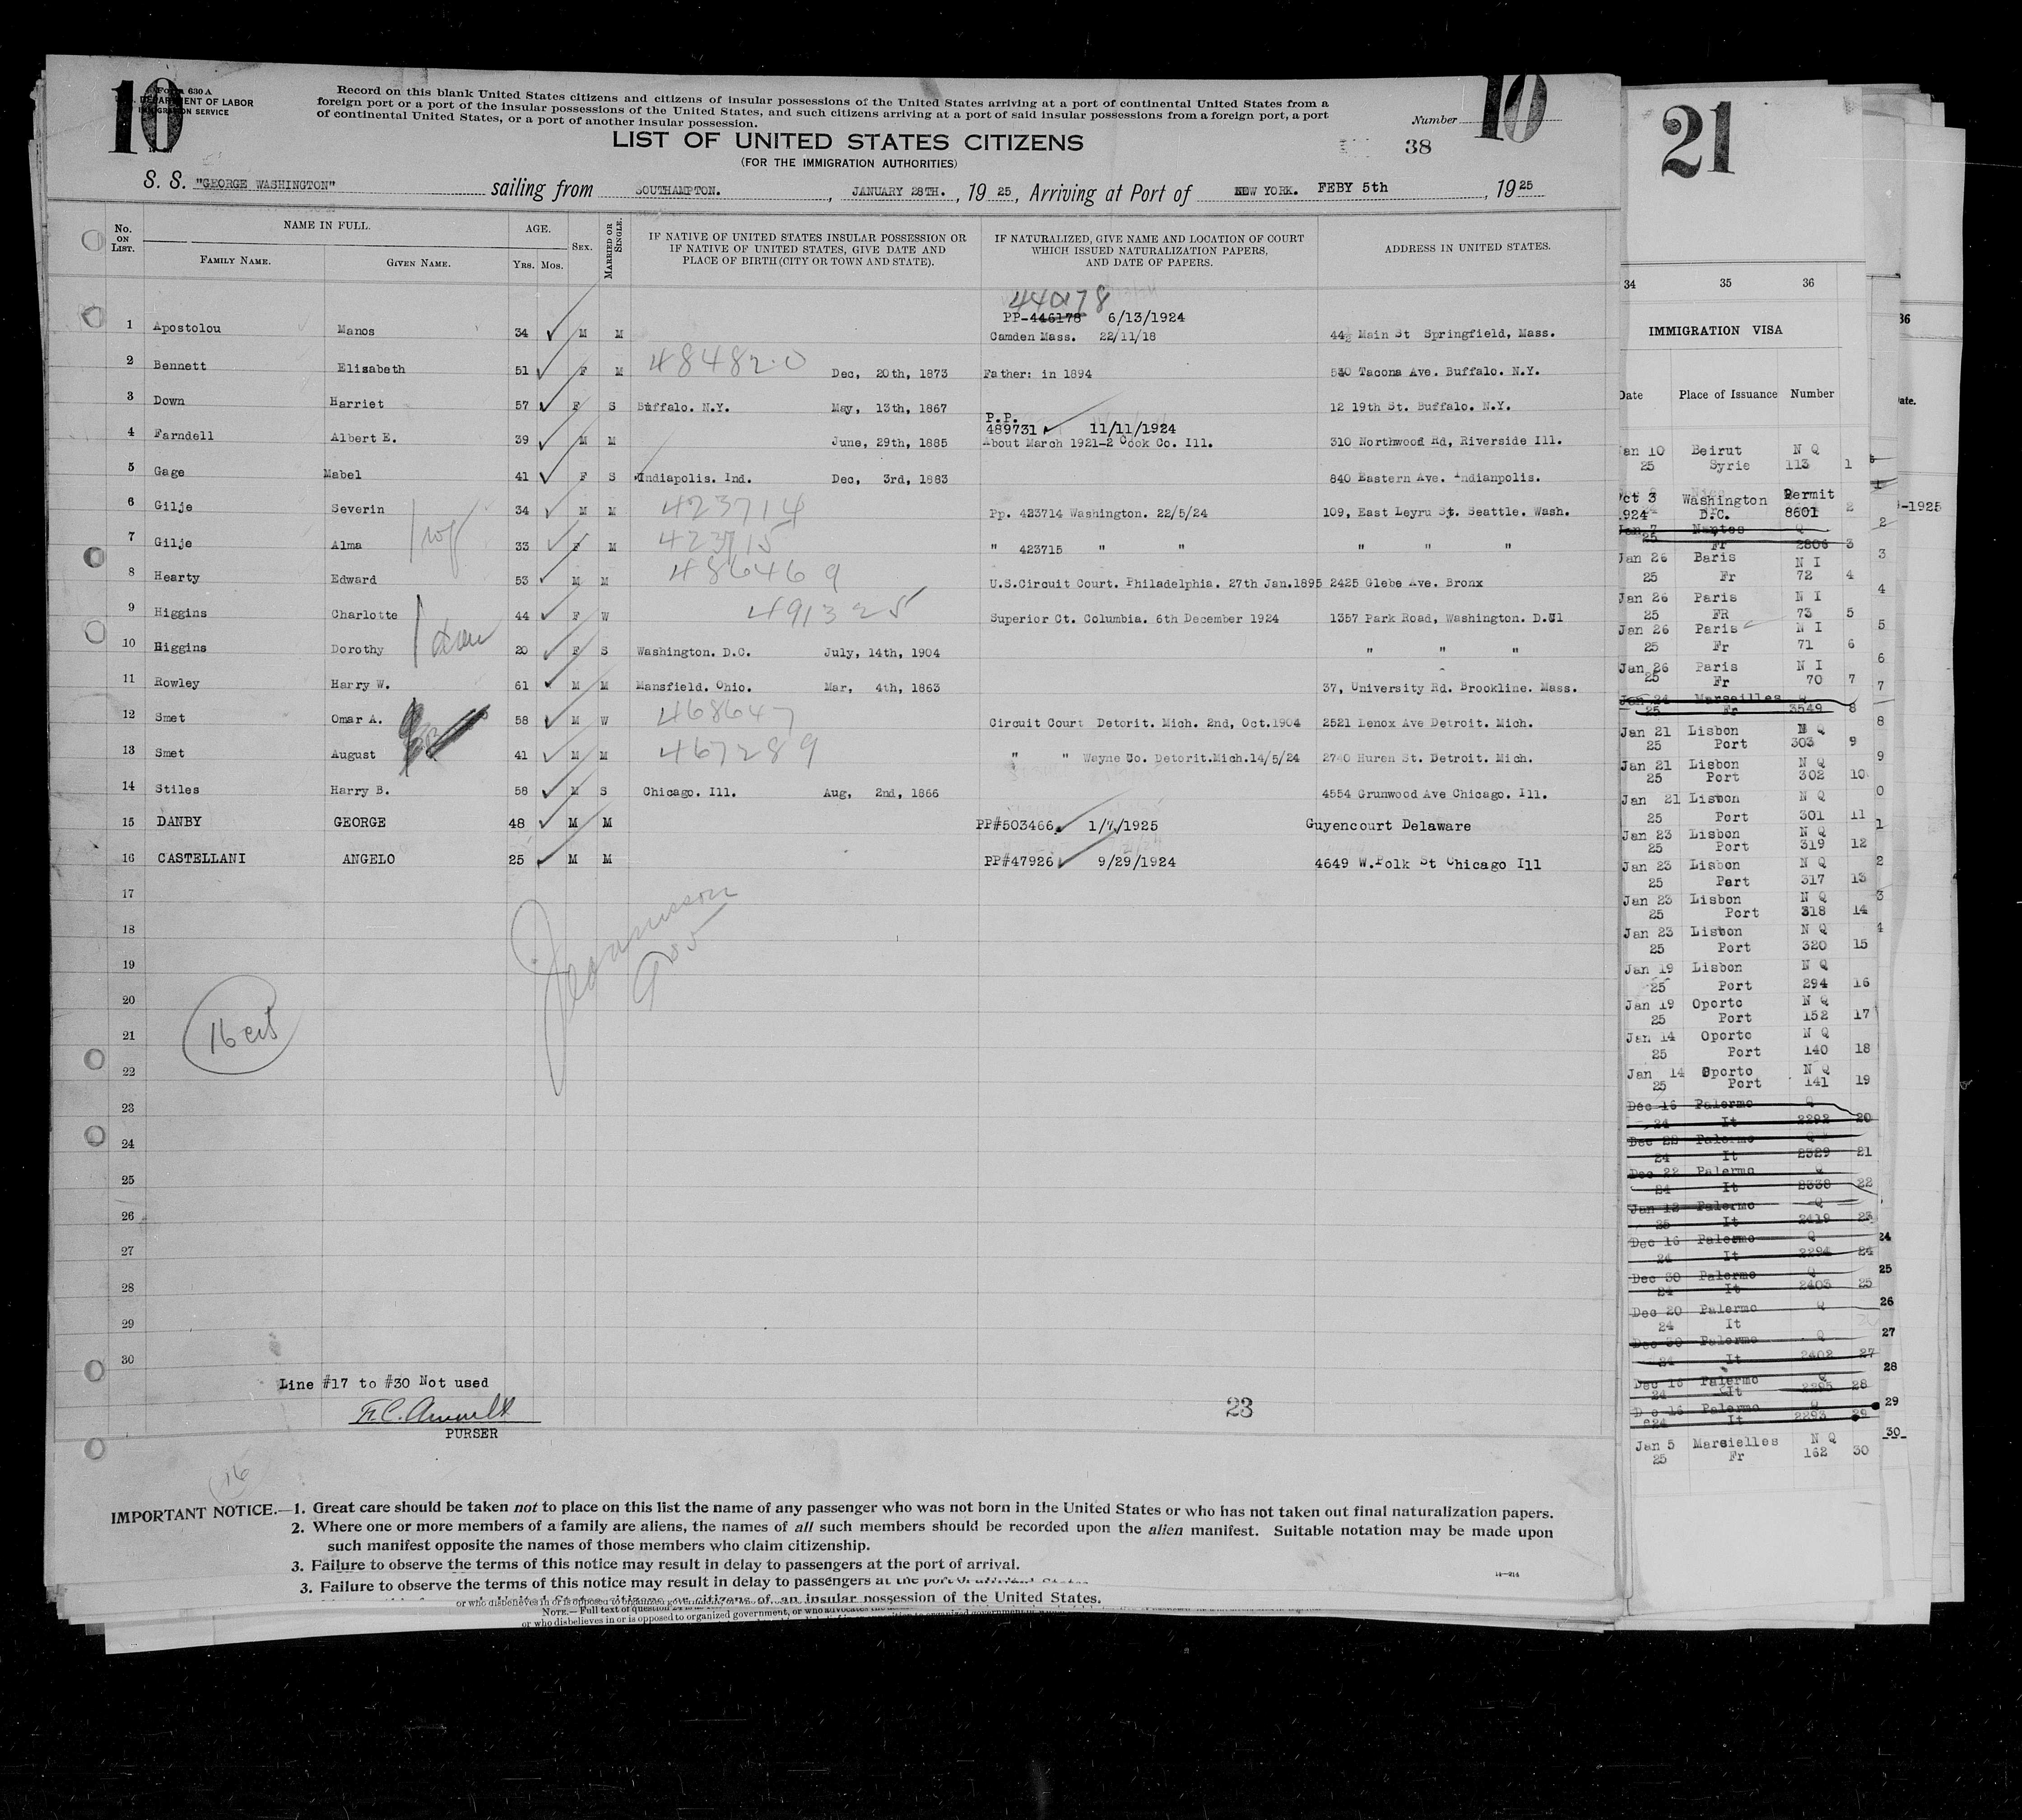 10
Form 630 A
U.S. DEPARTMENT OF LABOR
IMMIGRATION SERVICE
Record on this blank United States citizens and citizens of insular possessions of the United States arriving at a port of continental United States from a
foreign port or a port of the insular possessions of the United States, and such citizens arriving at a port of said insular possessions from a foreign port, a port
of continental United States, or a port of another insular possession.
Number 10
LIST OF UNITED STATES CITIZENS
38
(FOR THE IMMIGRATION AUTHORITIES)
S. S. "GEORGE WASHINGTON" sailing from SOUTHAMPTON. , JANUARY 28TH. , 19 25, Arriving at Port of NEW YORK. FEBY 5th , 19 25
No. ON LIST. NAME IN FULL. FAMILY NAME. GIVEN NAME. AGE. YRS. MOS. SEX. MARRIED OR SINGLE. IF NATIVE OF UNITED STATES INSULAR POSSESSION OR IF NATIVE OF UNITED STATES, GIVE DATE AND PLACE OF BIRTH (CITY OR TOWN AND STATE). IF NATURALIZED, GIVE NAME AND LOCATION OF COURT WHICH ISSUED NATURALIZATION PAPERS, AND DATE OF PAPERS. ADDRESS IN UNITED STATES.
440178
PP-446178 6/13/1924
1 Apostolou Manos 34 M M Camden Mass. 22/11/18 44½ Main St Springfield, Mass.
2 Bennett Elisabeth 51 F M 484820 Dec, 20th, 1873 Father: in 1894 530 Tacona Ave. Buffalo. N.Y.
3 Down Harriet 57 F S Buffalo. N.Y. May, 13th, 1867 12 19th St. Buffalo. N.Y.
P.P.
489731 11/11/1924
4 Farndell Albert E. 39 M M June, 29th, 1885 About March 1921-2 Cook Co. Ill. 310 Northwood Rd, Riverside Ill.
5 Gage Mabel 41 F S Indiapolis. Ind. Dec, 3rd, 1883 840 Eastern Ave. Indianpolis.
6 Gilje Severin 34 M M 423714 Pp. 423714 Washington. 22/5/24 109, East Leyru St. Seattle. Wash.
7 Gilje Alma 33 F M 423715 " 423715 " " " " "
8 Hearty Edward 53 M M 486469 U.S.Circuit Court. Philadelphia. 27th Jan.1895 2425 Glebe Ave. Bronx
9 Higgins Charlotte 44 F W 491325 Superior Ct. Columbia. 6th December 1924 1357 Park Road, Washington. D.Cl
10 Higgins Dorothy 20 F S Washington. D.C. July, 14th, 1904 " " "
11 Rowley Harry W. 61 M M Mansfield. Ohio. Mar, 4th, 1863 37, University Rd. Brookline. Mass.
12 Smet Omar A. 58 M W 468647 Circuit Court Detorit. Mich. 2nd, Oct.1904 2521 Lenox Ave Detroit. Mich.
13 Smet August 41 M M 467289 " " Wayne Co. Detorit.Mich.14/5/24 2740 Huren St. Detroit. Mich.
14 Stiles Harry B. 58 M S Chicago. Ill. Aug, 2nd, 1866 4554 Grunwood Ave Chicago. Ill.
15 DANBY GEORGE 48 M M PP#503466 1/7/1925 Guyencourt Delaware
16 CASTELLANI ANGELO 25 M M PP#47926 9/29/1924 4649 W.Polk St Chicago Ill
17
18
19
20
21
16 cit
22
23
24
25
26
27
28
29
30
Line #17 to #30 Not used
PURSER
23
16
IMPORTANT NOTICE.—1. Great care should be taken not to place on this list the name of any passenger who was not born in the United States or who has not taken out final naturalization papers.
2. Where one or more members of a family are aliens, the names of all such members should be recorded upon the alien manifest. Suitable notation may be made upon
such manifest opposite the names of those members who claim citizenship.
3. Failure to observe the terms of this notice may result in delay to passengers at the port of arrival.
14—214
3. Failure to observe the terms of this notice may result in delay to passengers at the port of
citizens of an insular possession of the United States.
or who disbelieves in or is opposed to organized government,
NOTE.—Full text of question
or who disbelieves in or is opposed to organized government, or who advocates
21
34 35 36
IMMIGRATION VISA
Date Place of Issuance Number
Jan 10 Beirut N Q
25 Syrie 113 1
Oct 3 Washington Permit
1924 D.C. 8601 2
Jan 7 Nantes Q
25 Fr 2806 3
Jan 26 Baris N I
25 Fr 72 4
Jan 26 Paris N I
25 FR 73 5
Jan 26 Paris N I
25 Fr 71 6
Jan 26 Paris N I
25 Fr 70 7
Jan 24 Marseilles Q
25 Fr 3549 8
Jan 21 Lisbon N Q
25 Port 303 9
Jan 21 Lisbon N Q
25 Port 302 10
Jan 21 Lisbon N Q
25 Port 301 11
Jan 23 Lisbon N Q
25 Port 319 12
Jan 23 Lisbon N Q
25 Part 317 13
Jan 23 Lisbon N Q
25 Port 318 14
Jan 23 Lisbon N Q
25 Port 320 15
Jan 19 Lisbon N Q
25 Port 294 16
Jan 19 Oporto N Q
25 Port 152 17
Jan 14 Oporto N Q
25 Port 140 18
Jan 14 Oporto N Q
25 Port 141 19
Dec 16 Palermo Q
24 It 2292 20
Dec 22 Palermo Q
24 It 2329 21
Dec 22 Palermo Q
24 It 2338 22
Jan 12 Palermo Q
25 It 2419 23
Dec 16 Palermo Q
24 It 2294 24
Dec 30 Palermo Q
24 It 2403 25
Dec 20 Palermo Q
24 It
Dec 30 Palermo Q
24 It 2402 27
Dec 16 Palermo Q
24 It 2295 28
Dec 16 Palermo Q
24 It 2293 29
Jan 5 Marsielles N Q
25 Fr 162 30
36
ate.
-1925
24
25
26
27
28
29
30